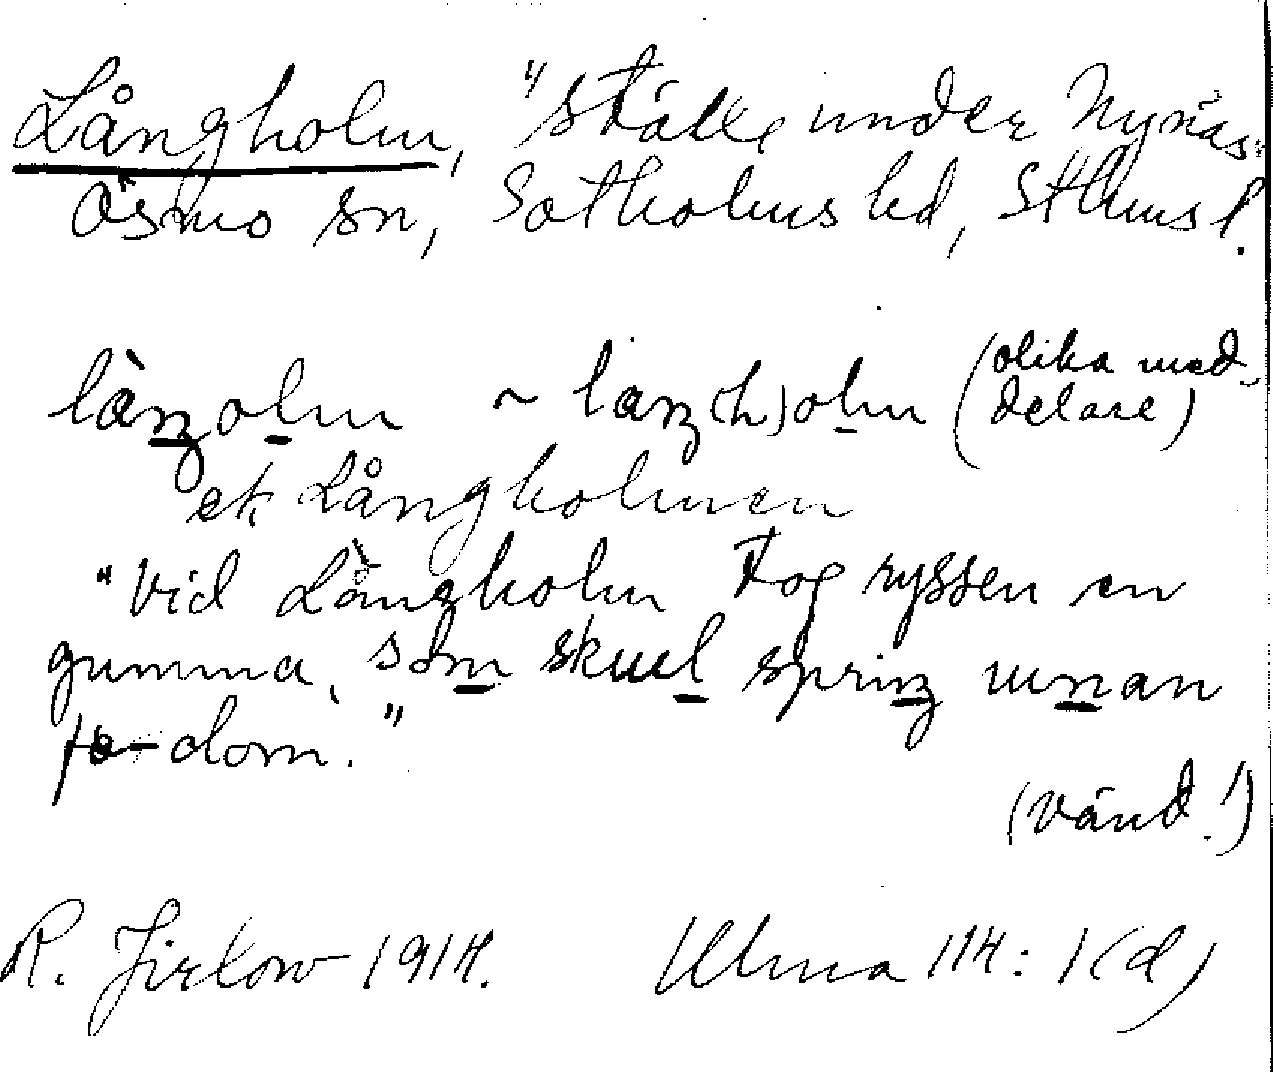 Långholm, "ställe under Nynäs"
Ösmo sn, Sotholms hd, Sthms l.
làŋolm ~ laŋ(h)olm (olika med-
delare)
ek. Långholmen
"Vid Långholm tog ryssen en
gumma, som skul spriŋ unan
fö- dom."
(vänd!)
R. Jirlow 1914. Ulma 114: 1(d)